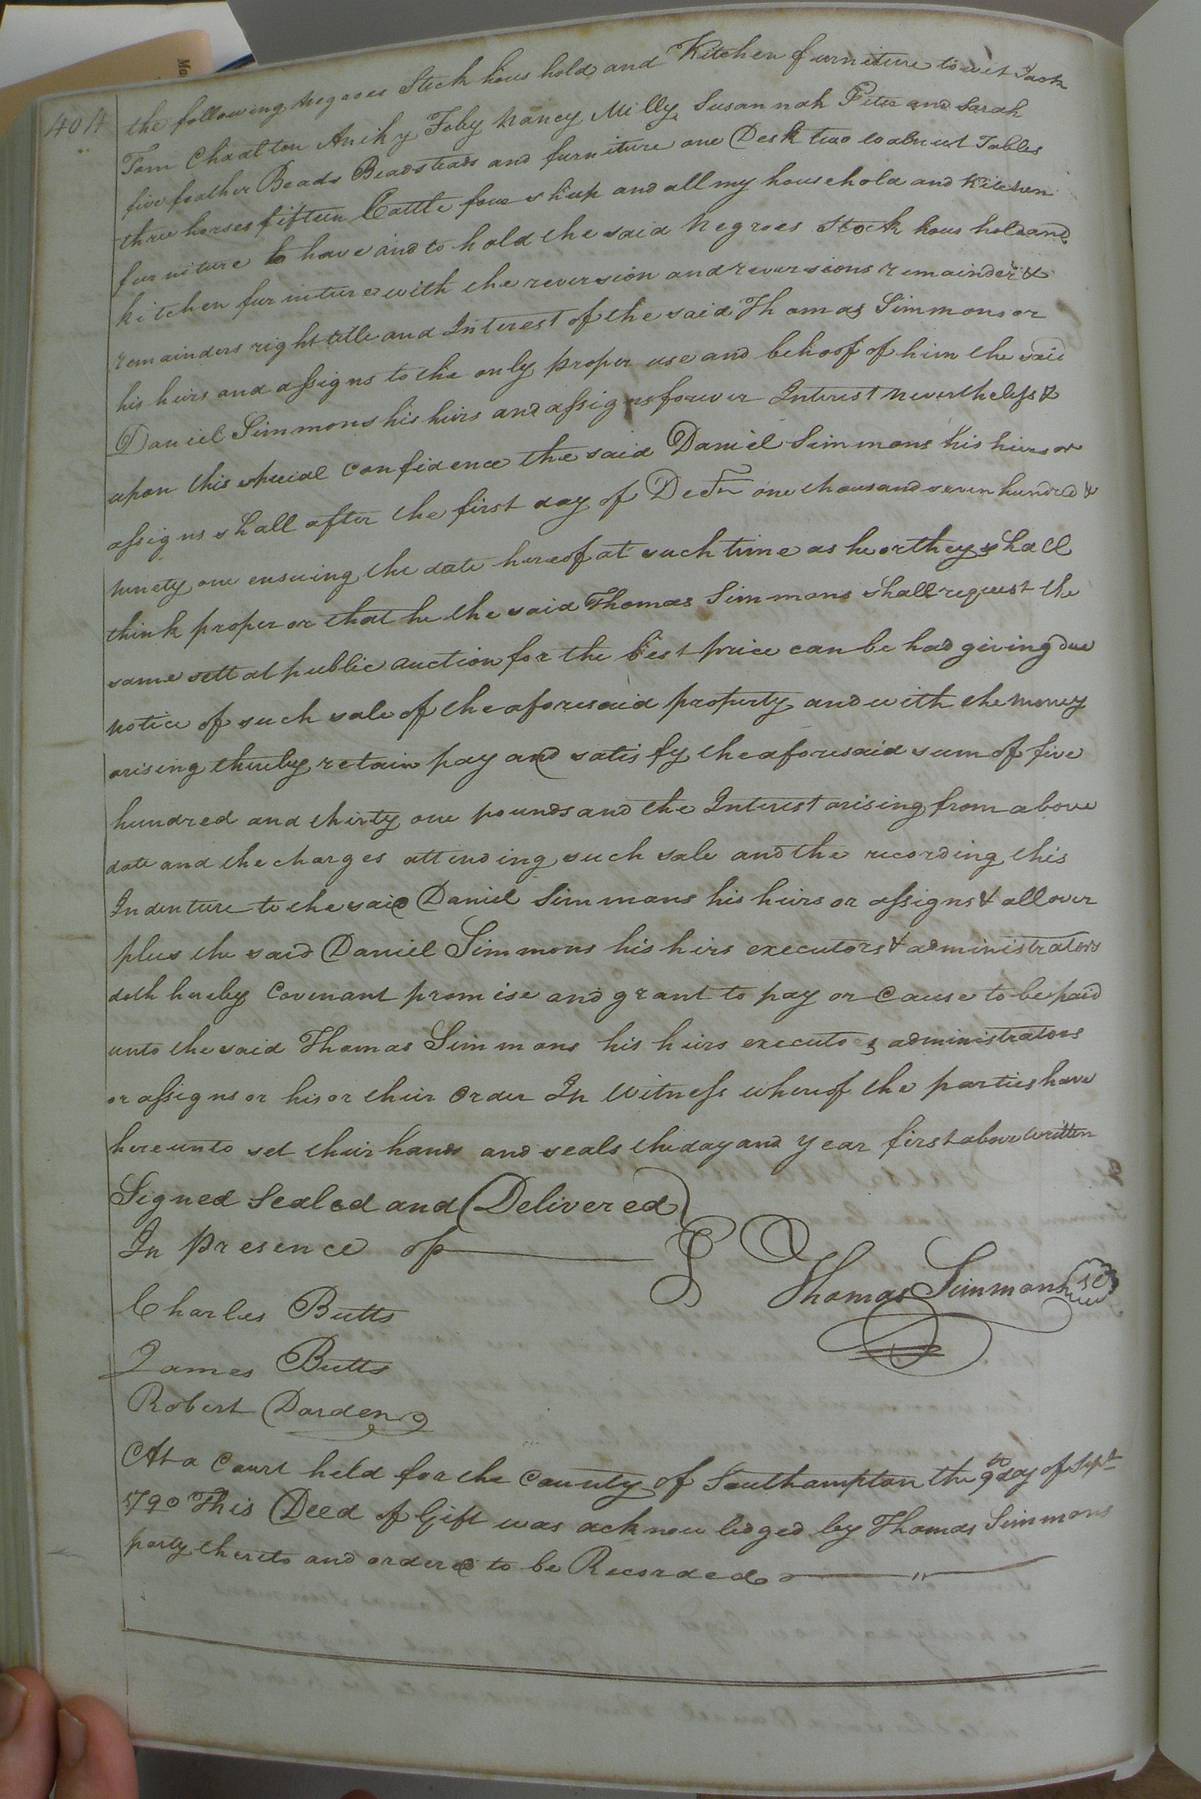 404
the following Negroes Stock hous hold and Kitchen furniture towit Jack
Tom Charlton Aniky Toby Nancy Milly Susannah Peter and Sarah
five feather Beads Beadsteads and furniture one Desk two walnut Tables
three horses fifteen Cattle four sheep and all my household and Kitchen
furniture to have and to hold the said Negroes Stock hous hold and
kitchen furniture with the reversion and reversions remainder &
remainders right title and Interest of the said Thomas Simmons or
his heirs and assigns to the only proper use and behoof of him the said
Daniel Simmons his heirs and assigns forever Interest nevertheless &
upon this special confidence the said Daniel Simmons his heirs or
assigns shall after the first day of Decr one thousand seven hundred &
ninety one ensuing the date hereof at such time as he or they shall
think proper or that he the said Thomas Simmons shall request the
same sell at public auction for the best price can be had giving due
notice of such sale of the aforesaid property and with the money
arising thereby retain pay and satisfy the aforesaid sum of five
hundred and thirty one pounds and the Interest arising from above
date and the charges attending such sale and the recording this
Indenture to the said Daniel Simmons his heirs or assigns & all over
plus the said Daniel Simmons his hirs executors & administrators
doth hereby Covenant promise and grant to pay or Cause to be paid
unto the said Thomas Simmons his heirs executors administrators
or assigns or his or their Order In Witness whereof the parties have
hereunto set their hands and seals the day and year first above written
Signed Sealed and Delivered
In Presence of
Thomas Simmons
Charles Butts
James Butts
Robert Darden
At a Court held for the County of Southampton the 9th day of Sept
1790 This Deed of Gift was acknowledged by Thomas Simmons
party thereto and ordered to be Recorded